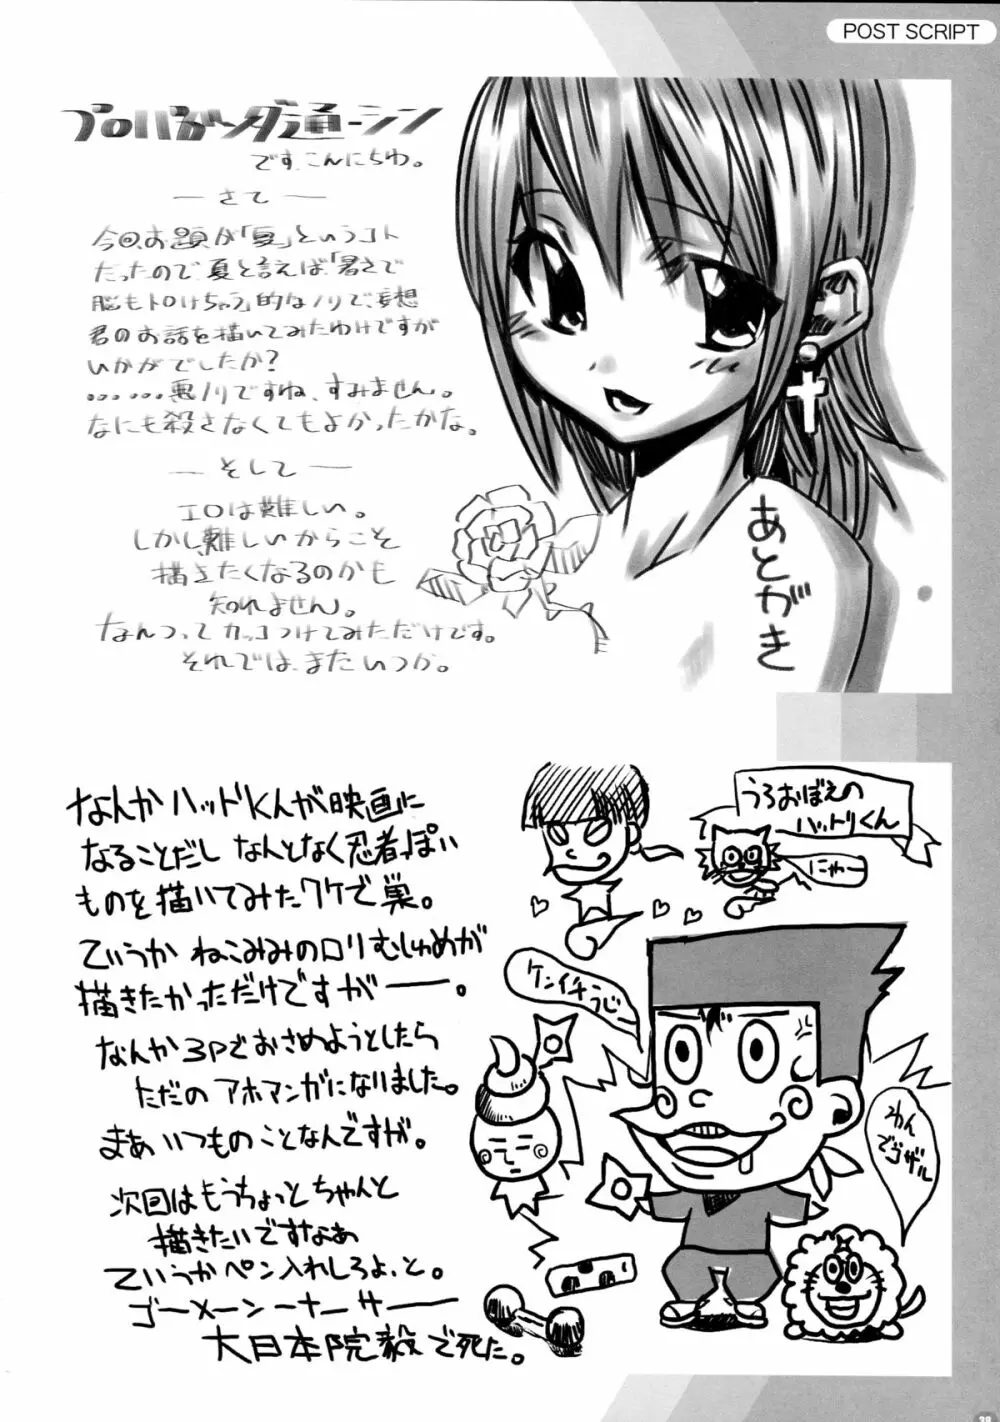 POST SCRIPT
プロパガンダ通ーシン
です、こんにちわ。
― さて ―
今回、お題が「夏」というコト
だったので、夏と言えば、「暑さで
脳もトロけちゃう」的なノリで、妄想
君のお話を描いてみたわけですが
いかがでしたか？
……悪ノリですね、すみません。
なにも殺さなくてもよかったかな。
― そして ―
エロは難しい。
しかし、難しいからこそ
描きたくなるのかも
知れません。
なんつってカッコつけてみただけです。
それでは、またいつか。
あとがき
なんかハットリくんが映画に
なることだし なんとなく忍者ぽい
ものを描いてみたワケで巣。
ていうか ねこみみのロリむしゅめが
描きたかっただけですがー―。
なんか3Pでおさめようとしたら
ただの アホマンガになりました。
まあ いつもの ことなんですが。
次回は もうちょっと ちゃんと
描きたいですなあ
ていうか ペン入れしろよ、と。
ゴーメーンーナーサー―
大日本院毅で死た。
うろおぼえの
ハットリくん
にゃー
ケンイチうじー
わん
でゴザル